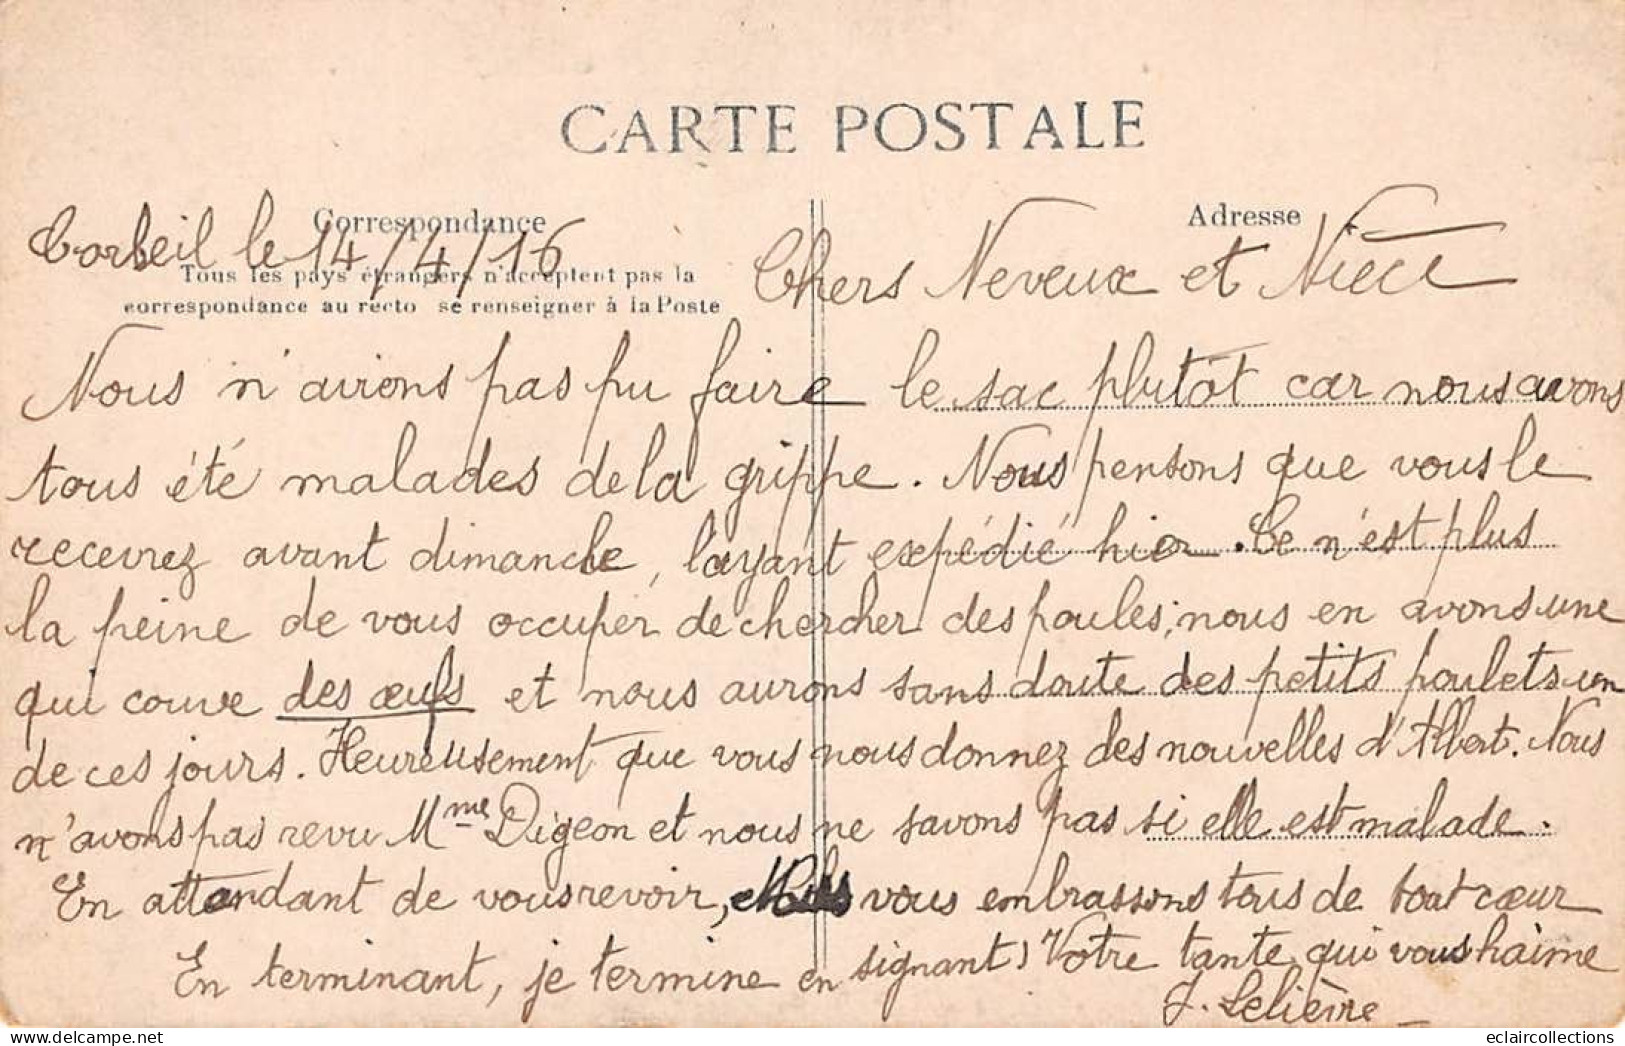 CARTE POSTALE
Correspondance
Adresse
Tous les pays étrangers n'acceptent pas la
correspondance au recto se renseigner à la Poste
Corbeil le 14/4/16
Chers Neveux et Niece
Nous n'avions pas pu faire le sac plutôt car nous avons
tous été malades de la grippe. Nous pensons que vous le
recevrez avant dimanche, l'ayant expédié hier. Ce n'est plus
la peine de vous occuper de chercher des poules, nous en avons une
qui couve des œufs et nous aurons sans doute des petits poulets un
de ces jours. Heureusement que vous nous donnez des nouvelles d'Albert. Nous
n'avons pas revu Mme Digeon et nous ne savons pas si elle est malade.
En attendant de vous revoir, Nous vous embrassons tous de tout cœur
En terminant, je termine en signant) Votre tante qui vous haime
J. Lelièvre
eclaircollections